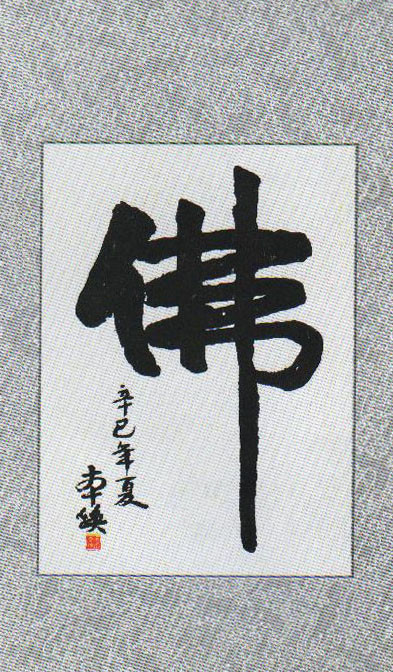 佛
辛巳年夏
本焕